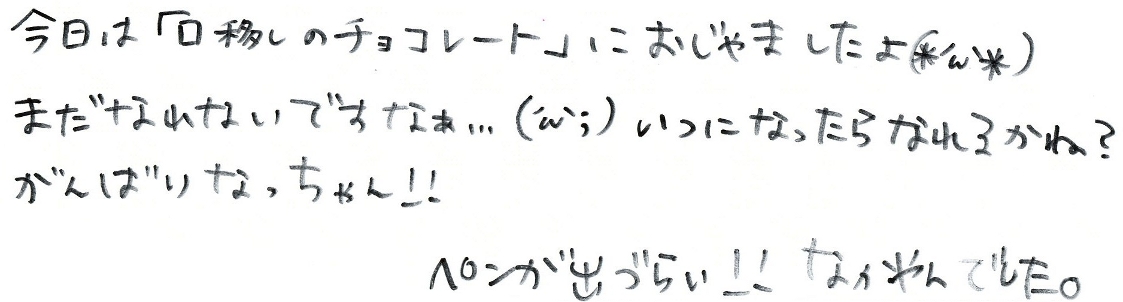 今日は「口移しのチョコレート」におじゃましたよ(*´ω`*)
まだなれないですなぁ…(´ω`;)いつになったらなれるかね?
がんばりなっちゃん!!
ペンが出づらい!!なかやんでした。